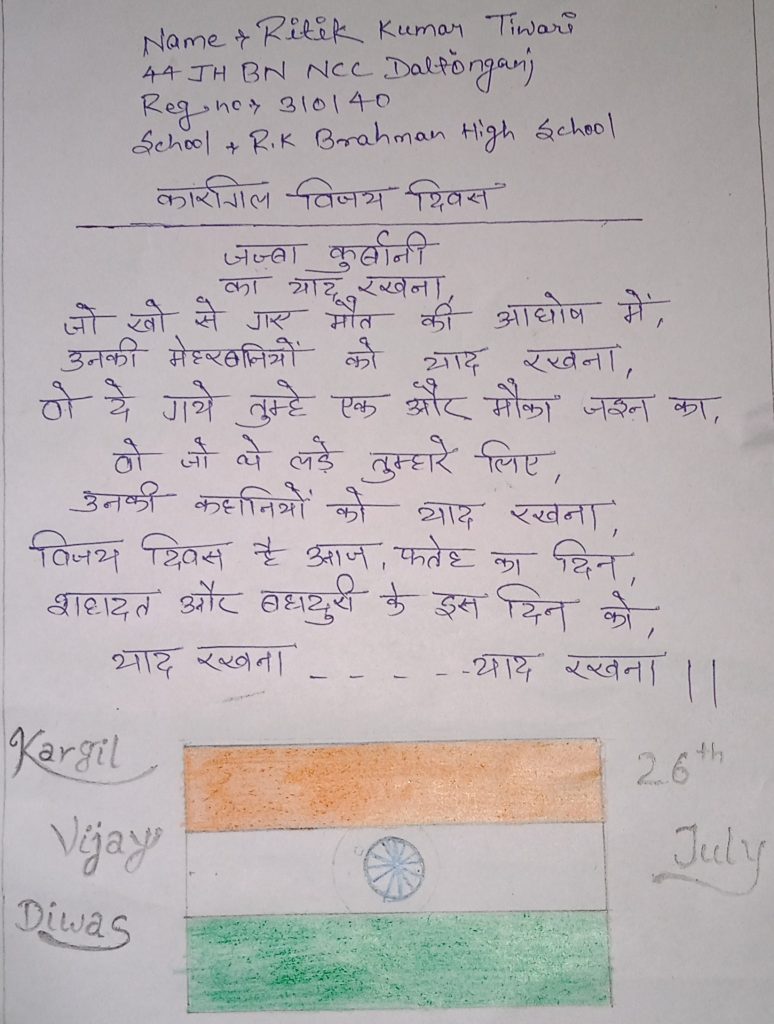 Name → Ritik Kumar Tiwari
44 JH BN NCC Daltonganj
Reg. no → 310140
School → R.K Brahman High School
कारगिल विजय दिवस
जज्बा कुर्बानी
का याद रखना,
जो खो से गए मौत की आघोष में,
उनकी मेहरबनियों को याद रखना,
वो दे गये तुम्हे एक और मौका जश्न का,
वो जो थे लड़े तुम्हारे लिए,
उनकी कहानियों को याद रखना,
विजय दिवस है आज, फतेह का दिन,
शहादत और बहादुरी के इस दिन को,
याद रखना _ _ _ _ _ याद रखना ||
Kargil
26th
Vijay
July
Diwas